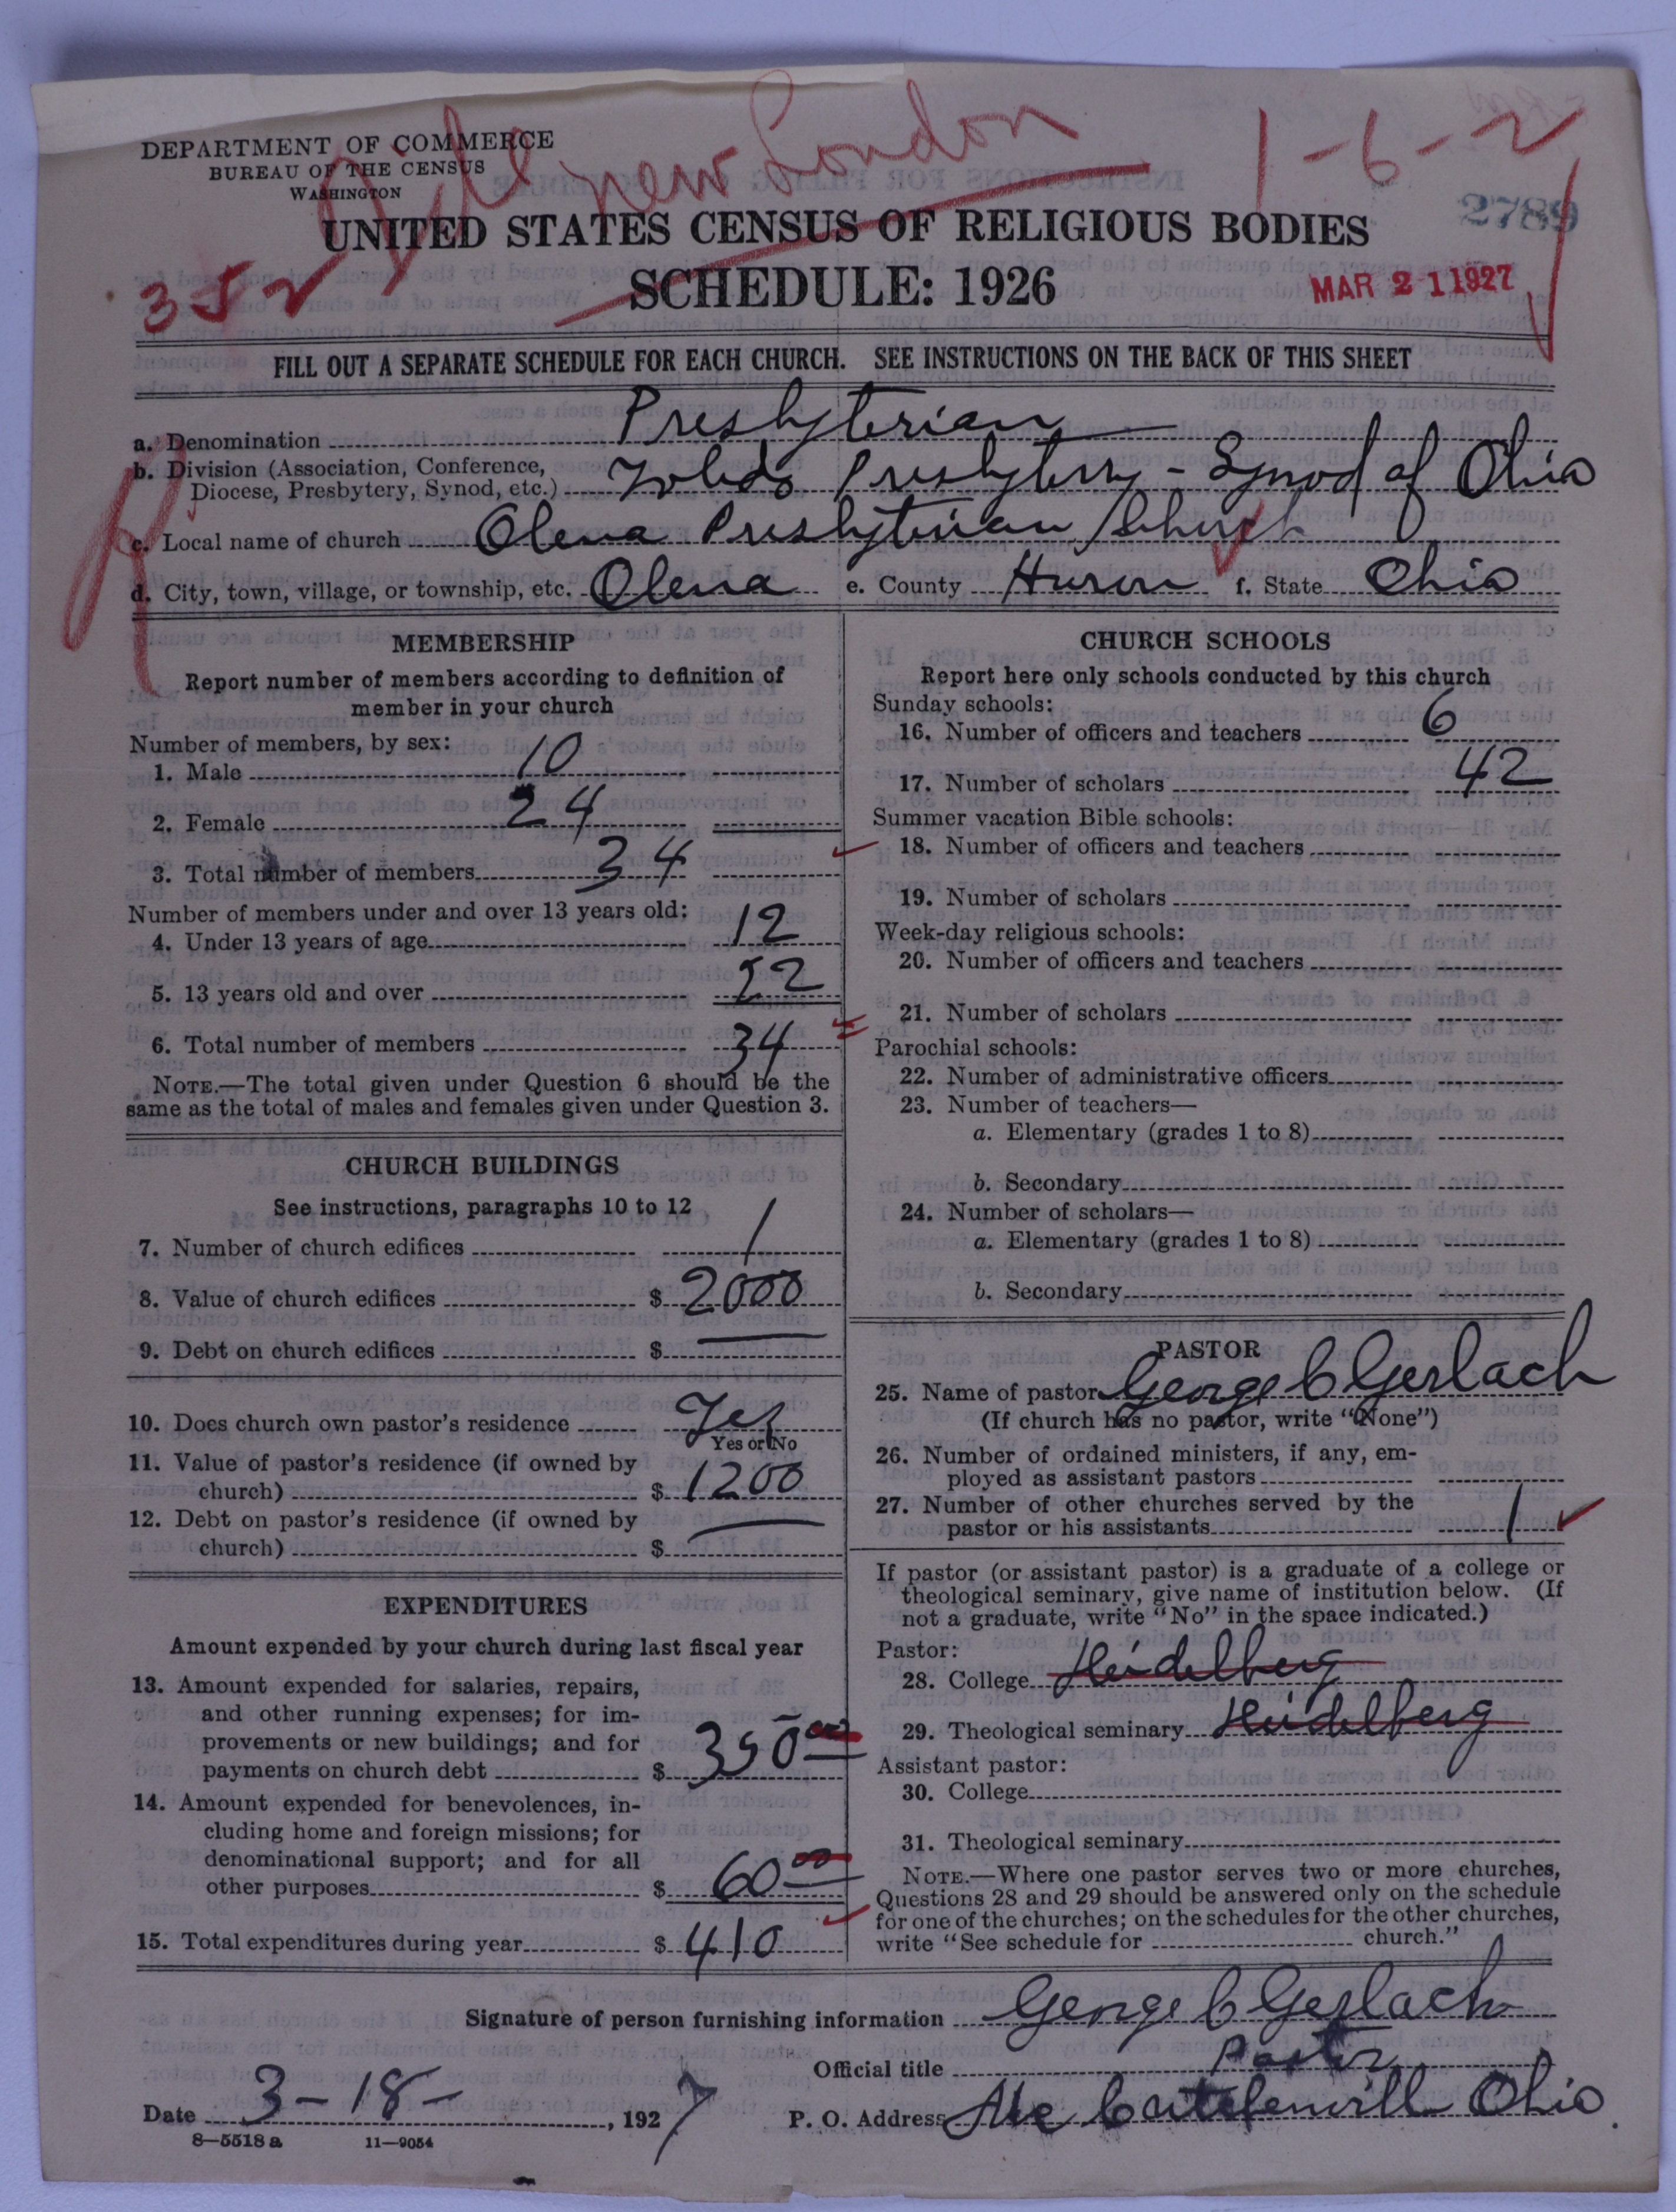 File New London
1-6-2
DEPARTMENT OF COMMERCE
BUREAU OF THE CENSUS
WASHINGTON
2789
UNITED STATES CENSUS OF RELIGIOUS BODIES
352
SCHEDULE: 1926
MAR 21 1927
FILL OUT A SEPARATE SCHEDULE FOR EACH CHURCH. SEE INSTRUCTIONS ON THE BACK OF THIS SHEET
a. Denomination Presbyterian
b. Division (Association, Conference, Diocese, Presbytery, Synod, etc.) Toledo Presbytery - Synod of Ohio
c. Local name of church Olena Presbyterian Church
d. City, town, village, or township, etc. Olena e. County Huron f. State Ohio
MEMBERSHIP
Report number of members according to definition of
member in your church
Number of members, by sex:
1. Male 10
2. Female 24
3. Total number of members 34
Number of members under and over 13 years old:
4. Under 13 years of age 12
5. 13 years old and over 22
6. Total number of members 34
NOTE.—The total given under Question 6 should be the
same as the total of males and females given under Question 3.
CHURCH BUILDINGS
See instructions, paragraphs 10 to 12
7. Number of church edifices 1
8. Value of church edifices $ 2000
9. Debt on church edifices $ —
10. Does church own pastor's residence Yes
Yes or No
11. Value of pastor's residence (if owned by
church) $ 1200
12. Debt on pastor's residence (if owned by
church) $ —
EXPENDITURES
Amount expended by your church during last fiscal year
13. Amount expended for salaries, repairs,
and other running expenses; for im-
provements or new buildings; and for
payments on church debt $ 350 00
14. Amount expended for benevolences, in-
cluding home and foreign missions; for
denominational support; and for all
other purposes $ 60 00
15. Total expenditures during year $ 410
CHURCH SCHOOLS
Report here only schools conducted by this church
Sunday schools:
16. Number of officers and teachers 6
17. Number of scholars 42
Summer vacation Bible schools:
18. Number of officers and teachers
19. Number of scholars
Week-day religious schools:
20. Number of officers and teachers
21. Number of scholars
Parochial schools:
22. Number of administrative officers
23. Number of teachers—
a. Elementary (grades 1 to 8)
b. Secondary
24. Number of scholars—
a. Elementary (grades 1 to 8)
b. Secondary
PASTOR
25. Name of pastor George C Gerlach
(If church has no pastor, write "None")
26. Number of ordained ministers, if any, em-
ployed as assistant pastors
27. Number of other churches served by the
pastor or his assistants 1
If pastor (or assistant pastor) is a graduate of a college or
theological seminary, give name of institution below. (If
not a graduate, write "No" in the space indicated.)
Pastor:
28. College Heidelberg
29. Theological seminary Heidelberg
Assistant pastor:
30. College
31. Theological seminary
NOTE.—Where one pastor serves two or more churches,
Questions 28 and 29 should be answered only on the schedule
for one of the churches; on the schedules for the other churches,
write "See schedule for church."
Signature of person furnishing information George C Gerlach
Official title Pastor
Date 3-18-, 1927 P. O. Address Ohio
8—5518 a 11—9054